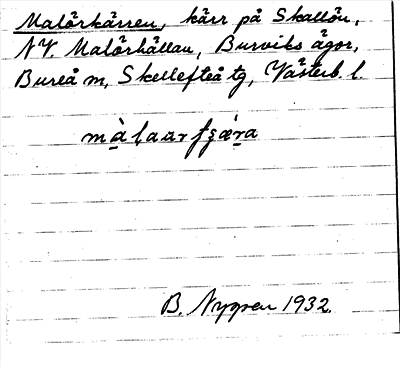 Malörkärren, kärr på Skallön,
NV. Malörhällan, Burviks ägor,
Bureå m, Skellefteå tg, Västerb. l.
B. Nygren 1932.